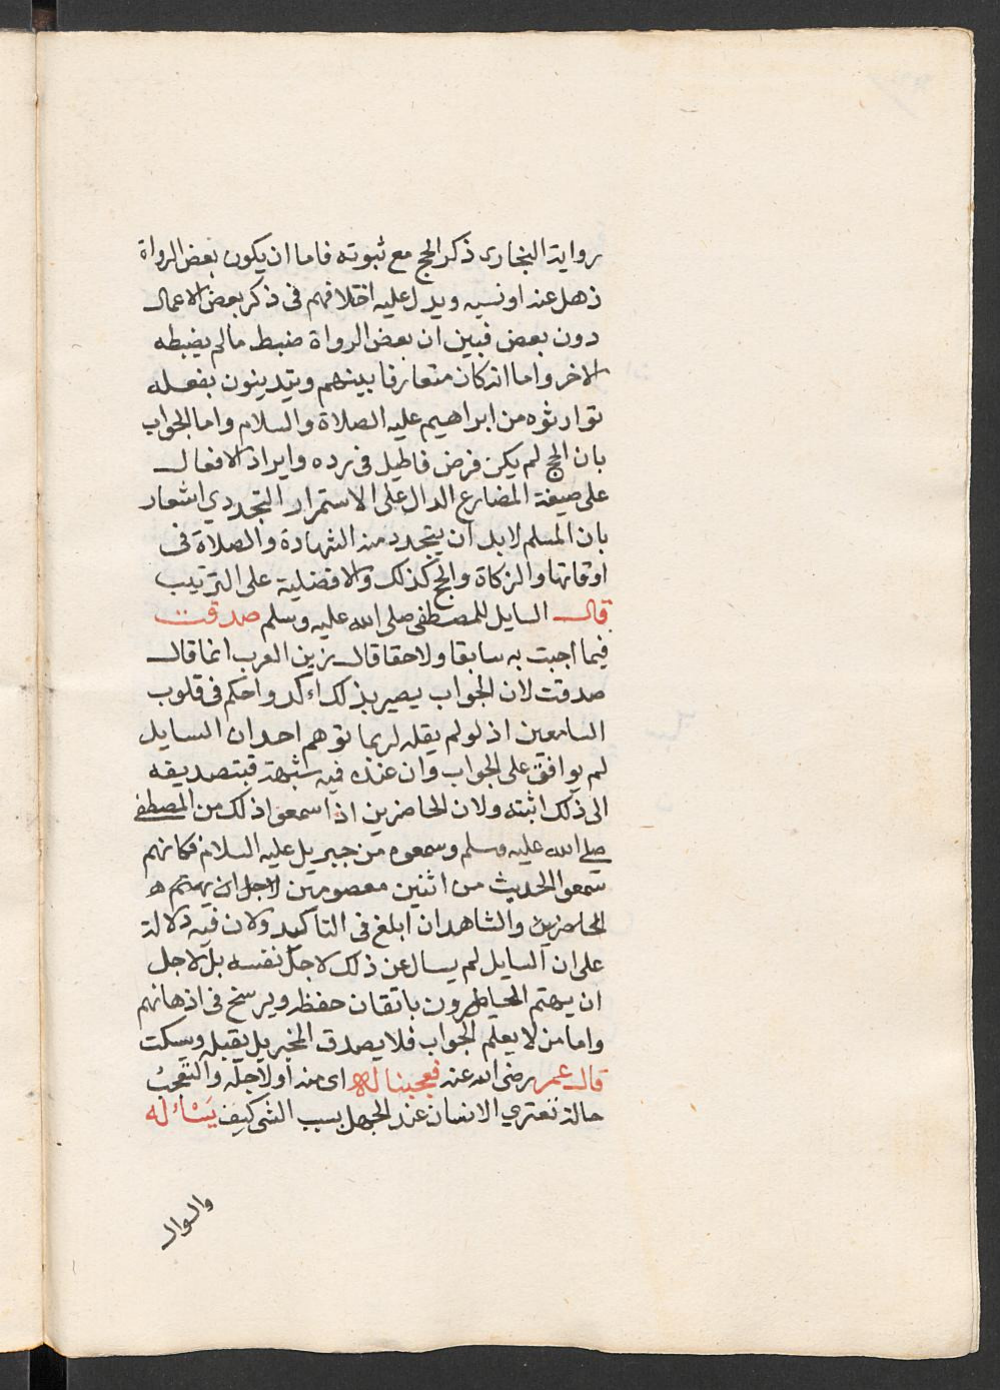 رواية البخارى ذكر الحج مع ثبوته فاما ان يكون بعض الرواة
ذهل عنه او نسيه ويدل عليه اختلافهم فى ذكر بعض الاعمال
دون بعض فبين ان بعض الرواة ضبط ما لم يضبطه
الاخر واما انه كان متعارفا بينهم ويتدينون بفعله
توارثوه من ابراهيم عليه الصلاة والسلام واما الجواب
بان الحج لم يكن فرض فاطيل فى رده وايراد الافعال
على صيغة المضارع الدال على الاستمرار التجددي اشعار
بان المسلم لا بد ان يتجدد منه الشهادة والصلاة فى
اوقاتها والزكاة والحج كذلك والافضلية على الترتيب
قال السايل للمصطفى صلى الله عليه وسلم صدقت
فيما اجبت به سابقا ولاحقا قال زين العرب انما قال
صدقت لان الجواب يصير بذلك اءكد واحكم فى قلوب
السامعين اذ لو لم يقله لربما توهم احد ان السايل
لم يوافق على الجواب وان عنده فيه شبهة فبتصديقه
الى ذلك اثبته ولان الحاضرين اذا سمعوا ذلك من المصطفى
صلى الله عليه وسلم وسمعوه من جبريل عليه السلام فكانهم
سمعوا الحديث من اثنين معصومين لاجل ان يهتم
الحاضرين والشاهدان ابلغ فى التاكيد ولان فيه دلالة
على ان السايل لم يسال عن ذلك لاجل نفسه بل لاجل
ان يهتم الحاضرون باتقان حفظه ويرسخ فى اذهانهم
واما من لا يعلم الجواب فلا يصدق المخبر بل يقبله ويسكت
قال عمر رضى الله عنه فعجبنا له اى منه او لاجله والتعجبُ
حالة تعتري الانسان عند الجهل بسبب الشى كيف يَسْاله
والسوال